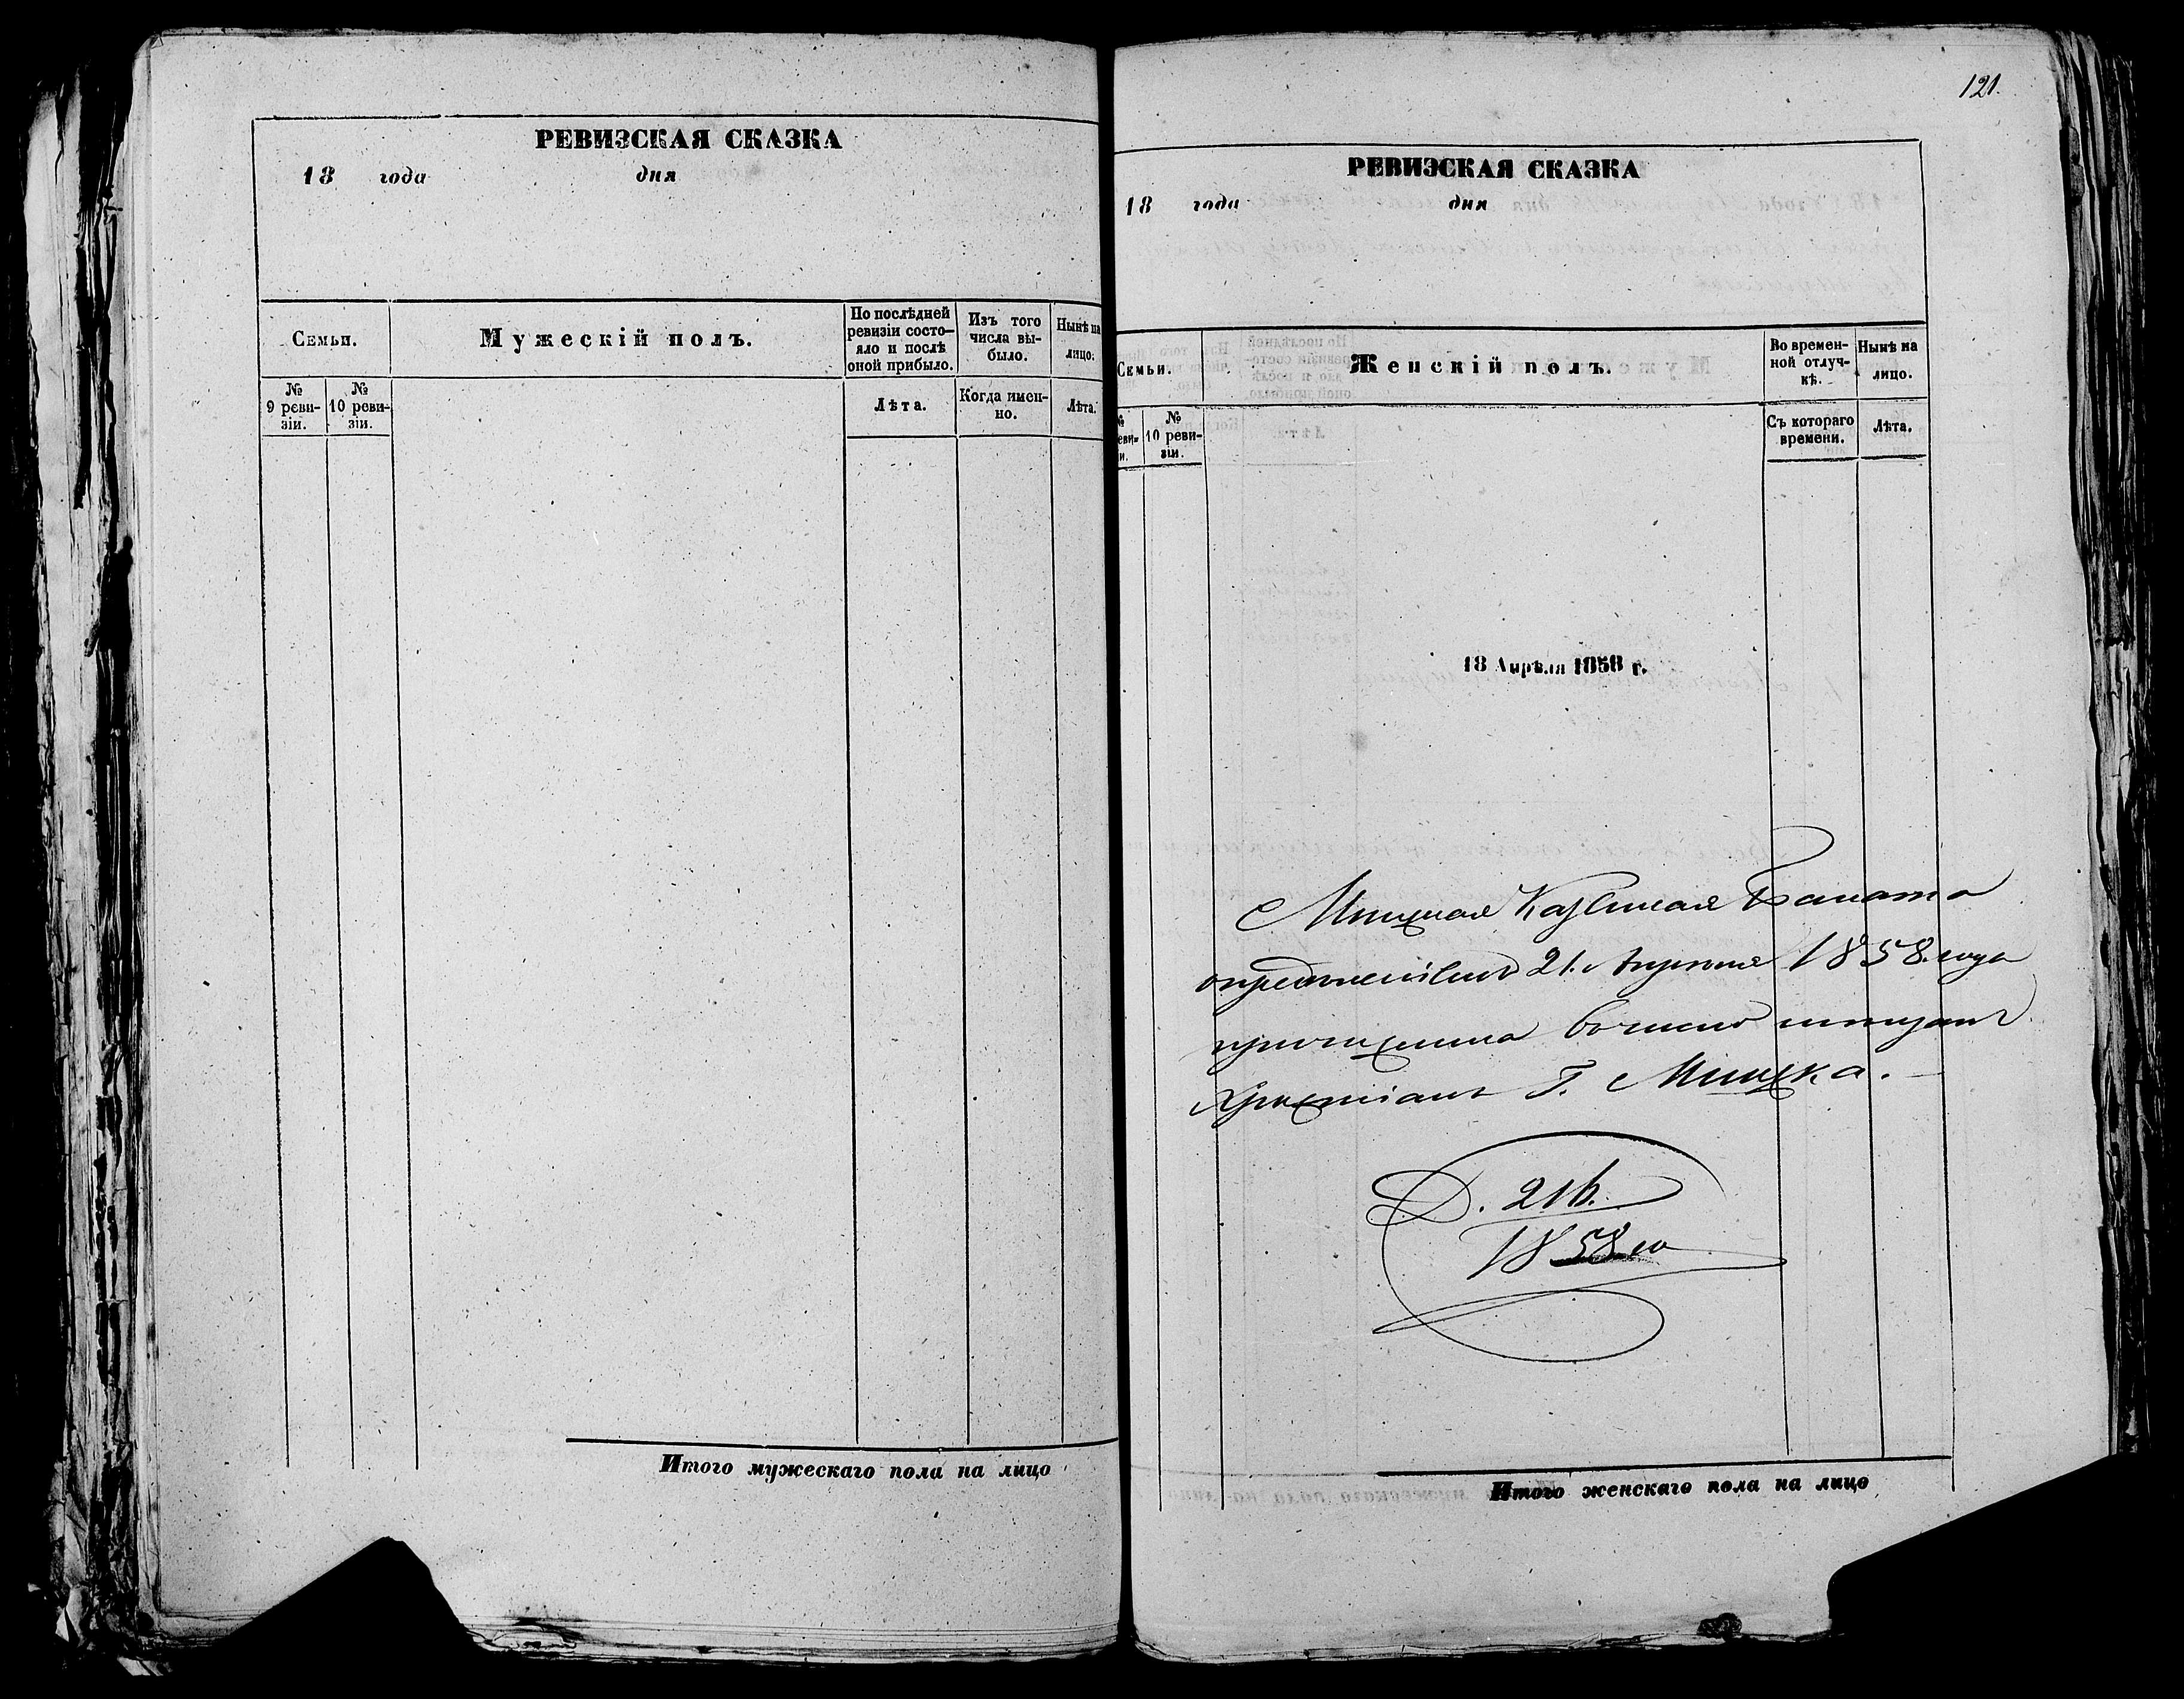 РЕВИЗСКАЯ СКАЗКА
18 года дня
Семьи.
Мужескій полъ.
По послѣдней ревизіи состо-
яло и послѣ
оной прибыло.
Изъ того
числа вы-
было.
Нынѣ на
лицо.
№
9 реви-
зіи.
№
10 реви-
зіи.
Лѣта.
Когда имен-
но.
Лѣта.
Итого мужескаго пола на лицо
121.
РЕВИЗСКАЯ СКАЗКА
18 года дня
Семьи.
Женскій полъ.
Во времен-
ной отлуч-
кѣ.
Нынѣ на
лицо.
№
еви-
и.
№
10 реви-
зіи.
Съ котораго
времени.
Лѣта.
18 Апрѣля 1858 г.
Минская Казенная Палата
опредѣленіемъ 21. Апрѣля 1858. года
причислила въ число мѣщанъ
Христіанъ Г. Минска.
Д. 216.
1858 го
Итого женскаго пола на лицо